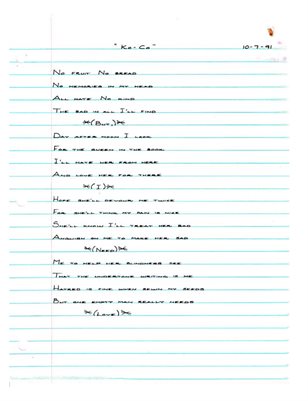 "Ko-Co" 10-7-91
No fruit No bread
No memories in my head
All hate No kind
The bad in all I'll find
*(But)*
Day after noon I look
For the queen in the book
I'll hate her from here
And love her for there
*(I)*
Hope she'll devour me twice
For she'll think my pain is nice
She'll know I'll treat her bad
Anguish on me to make her sad
*(Need)*
Me to help her blindness see
That the undertone writing is me
Hatred is fine when sewin my seeds
But one empty man really needs
*(Love)*